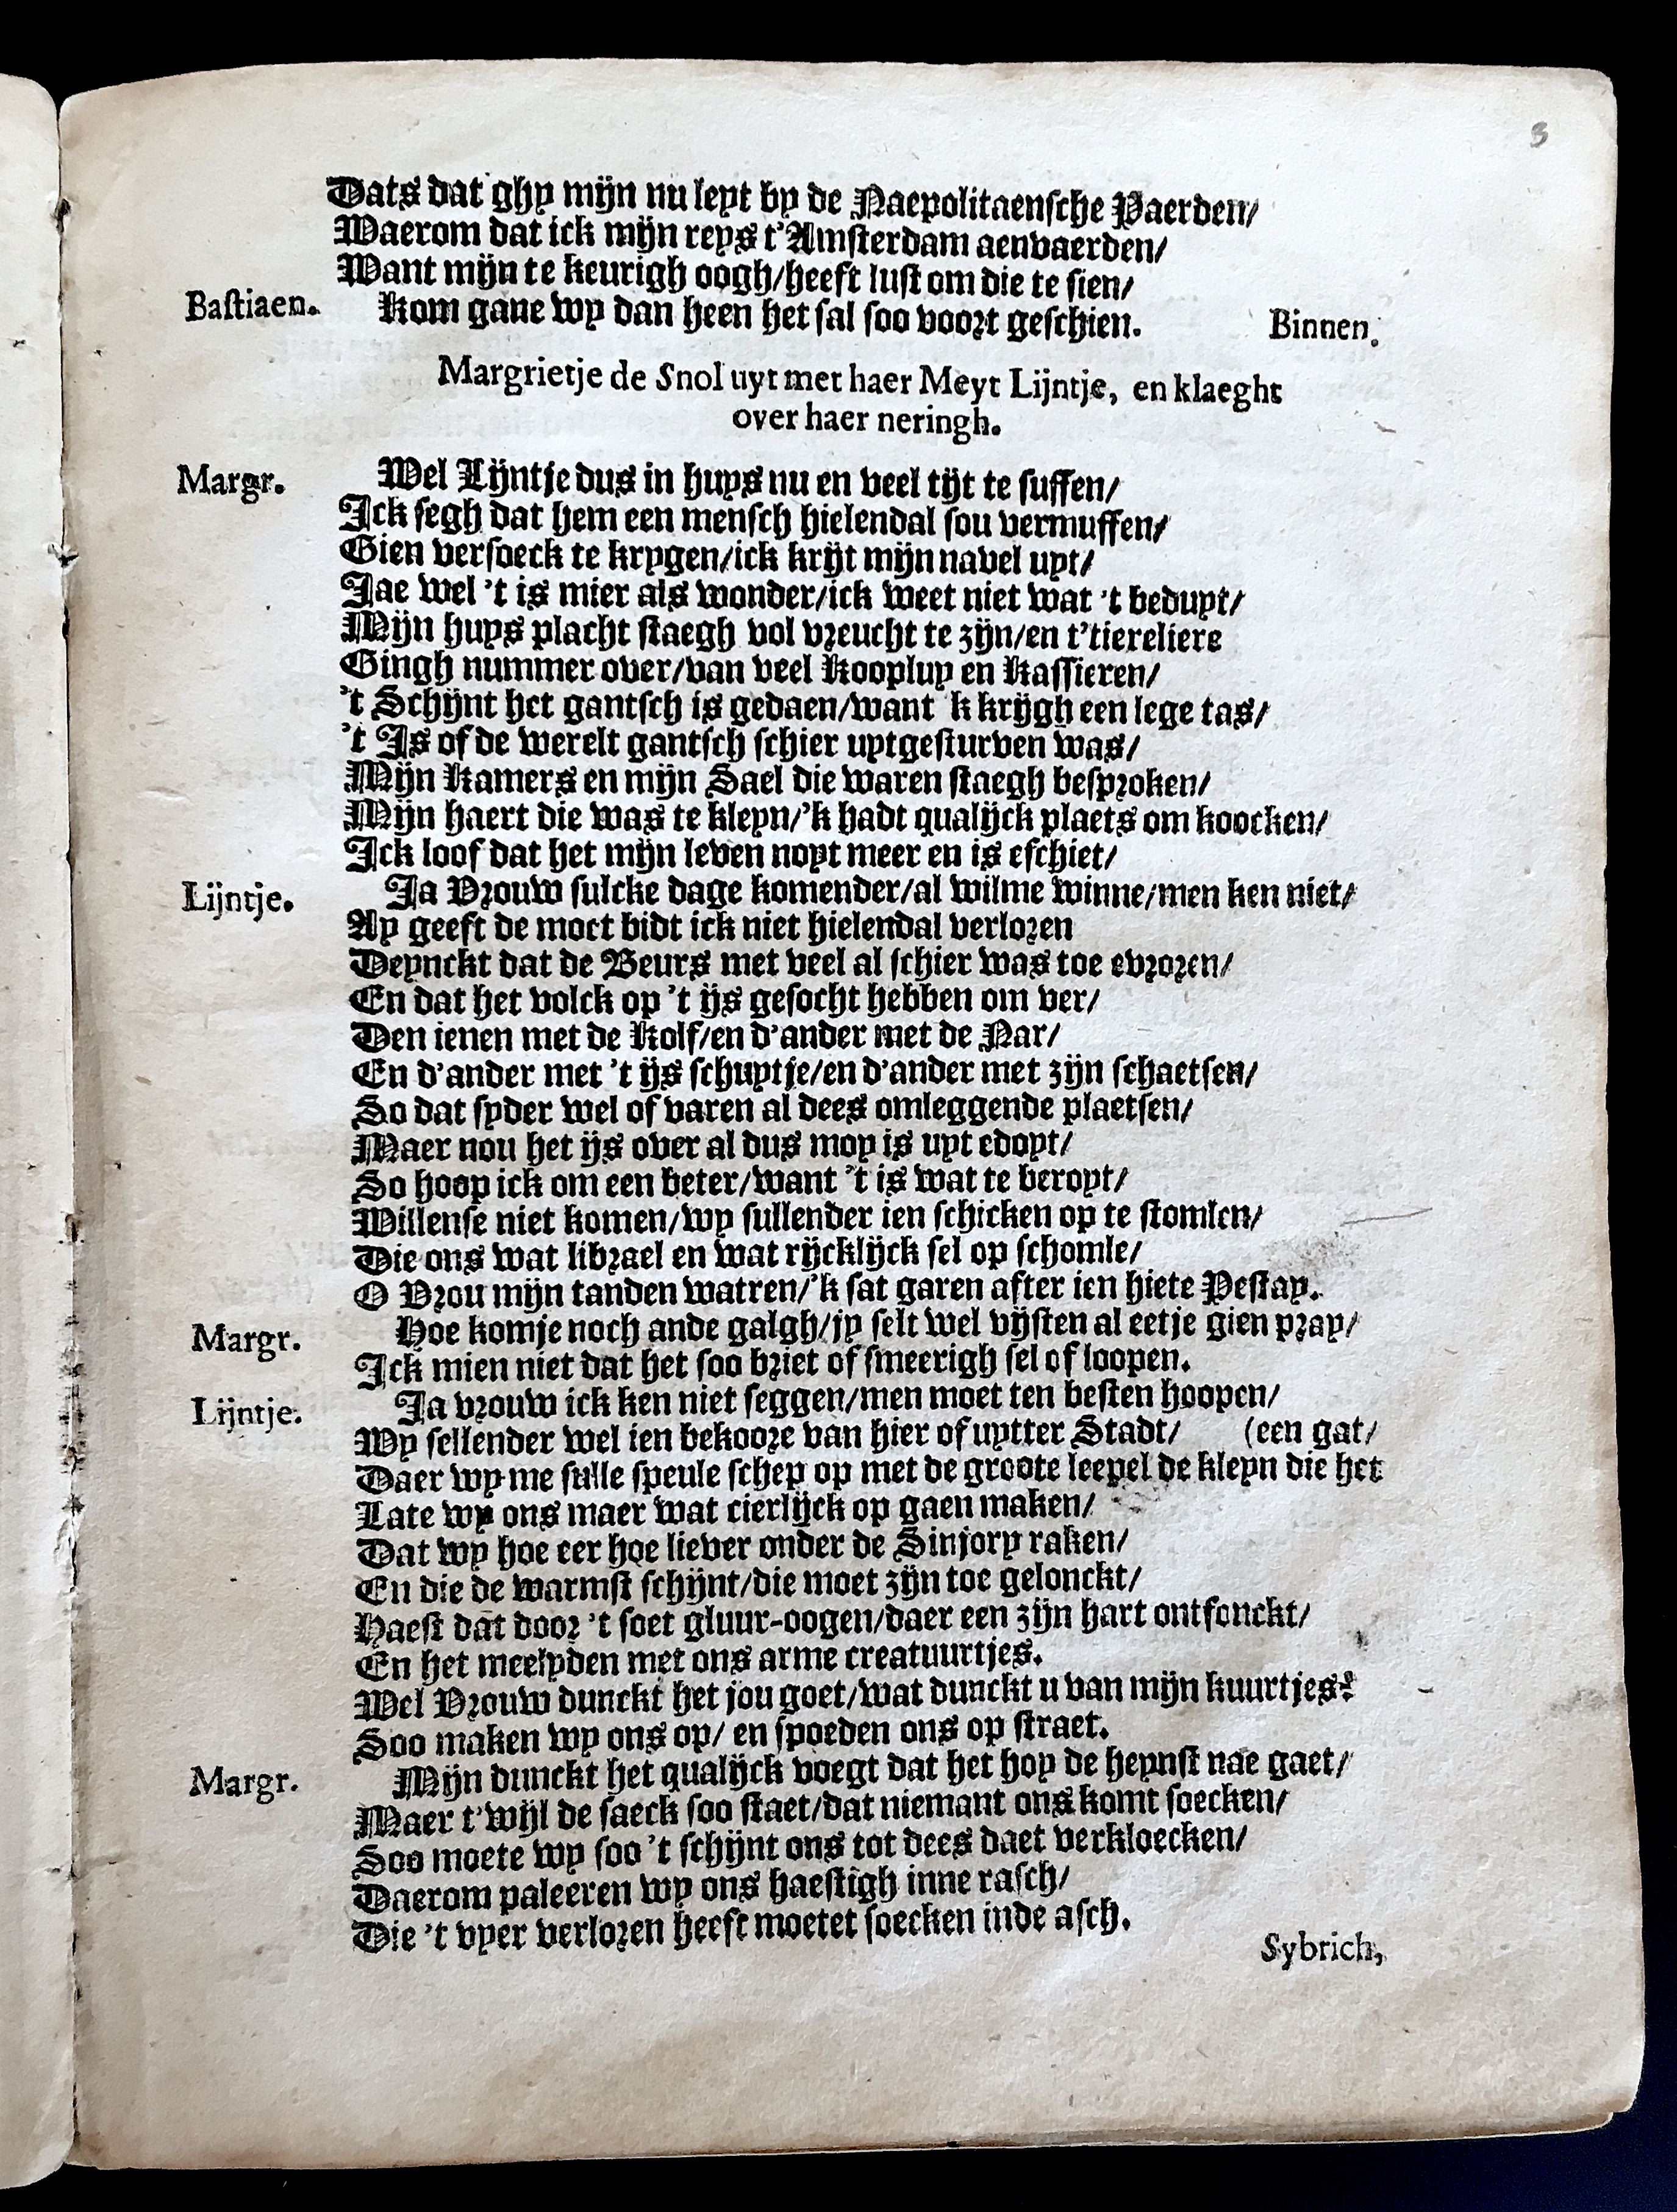 3
Dats dat ghy mijn nu leyt by de Naepolitaensche Paerden/
Waerom dat ick mijn reys t'Amsterdam aenvaerden/
Want mijn te keurigh oogh/heeft lust om die te sien/
Bastiaen. Kom gane wy dan heen het sal soo voort geschien. Binnen.
Margrietje de Snol uyt met haer Meyt Lijntje, en klaeght
over haer neringh.
Margr. Wel Lijntje dus in huys nu en veel tijt te suffen/
Ick segh dat hem een mensch hielendal sou vermuffen/
Gien versoeck te krygen/ick krijt mijn navel uyt/
Jae wel 't is mier als wonder/ick weet niet wat 't beduyt/
Mijn huys placht staegh vol vreucht te zijn/en t'tiereliere
Gingh nummer over/van veel Kooplup en Kassieren/
't Schijnt het gantsch is gedaen/want 'k krijgh een lege tas/
't Is of de werelt gantsch schier uytgesturven was/
Mijn Kamers en mijn Sael die waren staegh besproken/
Mijn haert die was te kleyn/'k hadt qualijck plaets om koocken/
Ick loof dat het mijn leven noyt meer en is eschiet/
Lijntje. Ja Vrouw sulcke dage komender/al wilme winne/men ken niet/
Ay geeft de moet bidt ick niet hielendal verloren
Deynckt dat de Beurs met veel al schier was toe evroren/
En dat het volck op 't ijs gesocht hebben om ver/
Den ienen met de Kolf/en d'ander met de Nar/
En d'ander met 't ijs schuytje/en d'ander met zijn schaetsen/
So dat syder wel of varen al dees omleggende plaetsen/
Maer nou het ijs over al dus moy is uyt edoyt/
So hoop ick om een beter/want 't is wat te beroyt/
Willense niet komen/wy sullender ien schicken op te stomlen/
Die ons wat libzael en wat rijcklijck sel op schomle/
O Vrou mijn tanden watren/'k sat garen after ien hiete Pestay.
Margr. Hoe komje noch ande galgh/jy selt wel vijsten al eetje gien pray/
Ick mien niet dat het soo briet of smeerigh sel of loopen.
Lijntje. Ja vrouw ick ken niet seggen/men moet ten besten hoopen/
Wy sellender wel ien bekoore van hier of uytter Stadt/ (een gat/
Daer wy me sulle speule schep op met de groote leepel de kleyn die het
Late wy ons maer wat cierlijck op gaen maken/
Dat wy hoe eer hoe liever onder de Sinjory raken/
En die de warmst schijnt/die moet zijn toe gelonckt/
Haest dat door 't soet gluur-oogen/daer een zijn hart ontfonckt/
En het meelyden met ons arme creatuurtjes.
Wel Vrouw dunckt het jou goet/wat dunckt u van mijn kuurtjes?
Soo maken wy ons op/ en spoeden ons op straet.
Margr. Mijn dunckt het qualijck voegt dat het hoy de heynst nae gaet/
Maer t'wijl de saeck soo staet/dat niemant ons komt soecken/
Soo moete wy soo 't schijnt ons tot dees daet verkloecken/
Daerom paleeren wy ons haestigh inne rasch/
Die 't vyer verloren heeft moetet soecken inde asch.
Sybrich,